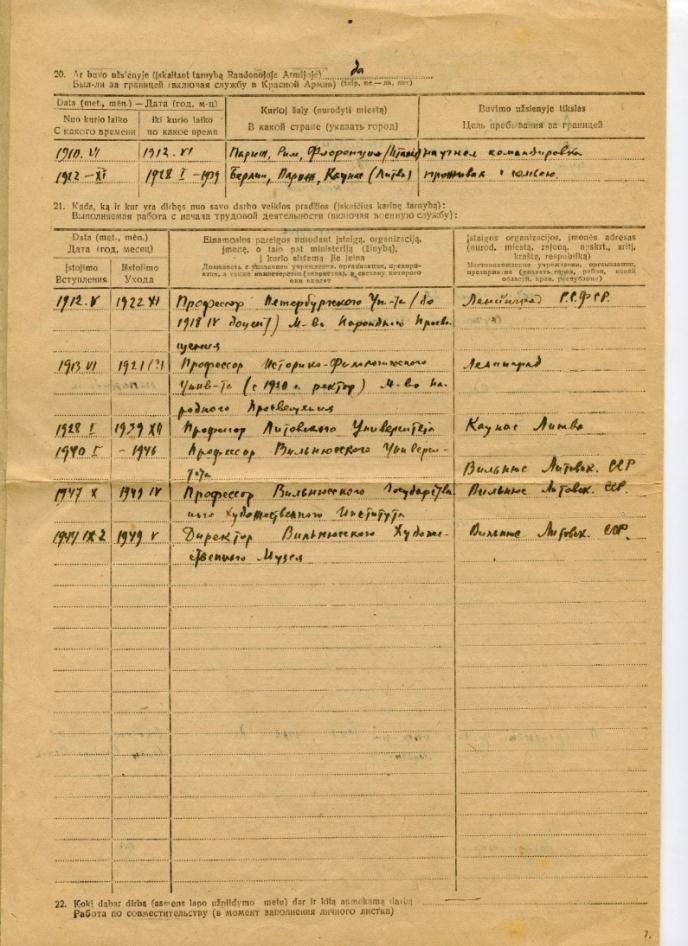 20. Ar buvo užsienyje (įskaitant tarnybą Raudonojoje Armijoje) да
Был-ли за границей (включая службу в Красной Армии) (taip, ne — да, нет)
Data (met., mėn.) — Дата (год, м-ц)
Nuo kurio laiko
С какого времени
iki kurio laiko
по какое время
Kurioj šaly (nurodyti miestą)
В какой стране (указать город)
Buvimo užsienyje tikslas
Цель пребывания за границей
1910. VI 1912. VI Париж, Рим, Флоренция (Италия) научная командировка
1922 — XI 1928 I — 1939 Берлин, Париж, Каунас (Литва) проживал с семьею.
21. Kada, ką ir kur yra dirbęs nuo savo darbo veiklos pradžios (įskaičius karinę tarnybą):
Выполняемая работа с начала трудовой деятельности (включая военную службу):
Data (met., mėn.)
Дата (год, месяц)
Įstojimo
Вступления
Išstojimo
Ухода
Einamosios pareigos nurodant įstaigą, organizaciją,
įmonę, o taip pat ministeriją (žinybą),
į kurio sistemą jie įeina
Должность с указанием учреждения, организации, предприятия,
а также министерства (ведомства), в систему которого
они входят
Įstaigos organizacijos, įmonės adresas
(nurod. miestą, rajoną, apskr., sritį,
kraštą, respubliką)
Местонахождение учреждения, организации,
предприятия (указать город, район, какой
области, края, республики)
1912. V 1922 XI Профессор Петербургского Ун-та (до Ленинград РСФСР.
1918 IV доцент) М-во Народного Просве-
щения
1913 VI 1921 Профессор Историко-Филологического Ленинград
Унив-та (с 1920 г. ректор) М-во На-
родного Просвещения
1928 I 1939 XII Профессор Литовского Университета Каунас Литва
1940 I - 1946 Профессор Вильнюсского Универси-
тета Вильнюс Литовск. ССР
1947 X 1949 IV Профессор Вильнюсского Государствен- Вильнюс Литовск. ССР.
ного Художественного Института
1944 IX 1949 V Директор Вильнюсского Художе- Вильнюс Литовск. ССР.
ственного Музея
22. Kokį dabar dirba (asmens lapo užpildymo metu) dar ir kitą apmokamą darbą
Работа по совместительству (в момент заполнения личного листка)
7.